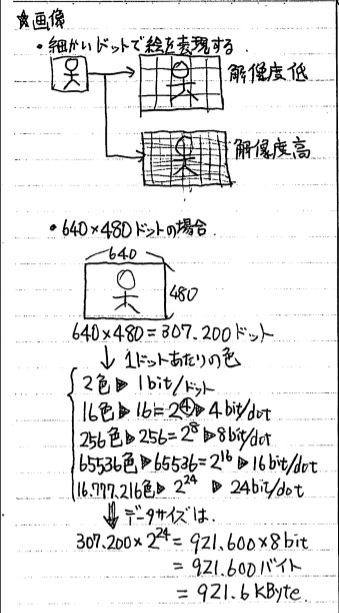 ☆画像
・細かいドットで絵を表現する.
解像度低
解像度高
・640×480ドットの場合.
640
480
640×480=307.200ドット
↓1ドットあたりの色
2色▶1bit/ドット
16色▶16=2④▶4bit/dot
256色▶256=2⁸▶8bit/dot
65536色▶65536=2¹⁶▶16bit/dot
16.777.216色▶2²⁴▶24bit/dot
⇓データサイズは.
307.200×2²⁴=921.600×8bit
=921.600バイト
=921.6kByte.